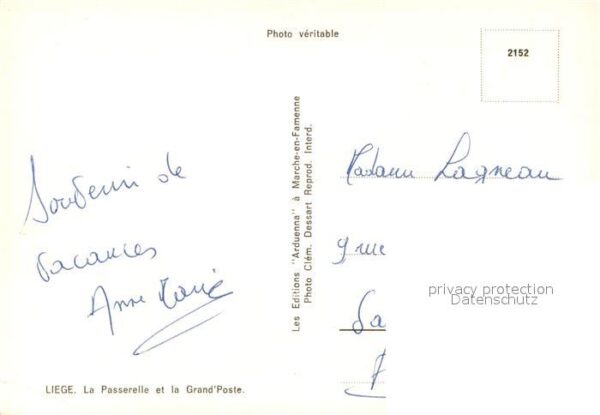 Photo véritable
2152
Souvenir de
Vacances
Anne Marie
Les Editions "Arduenna" à Marche-en-Famenne
Photo Clém. Dessart Reprod. Interd.
Madame Lagneau
9 rue
privacy protection
Datenschutz
LIEGE. La Passerelle et la Grand'Poste.